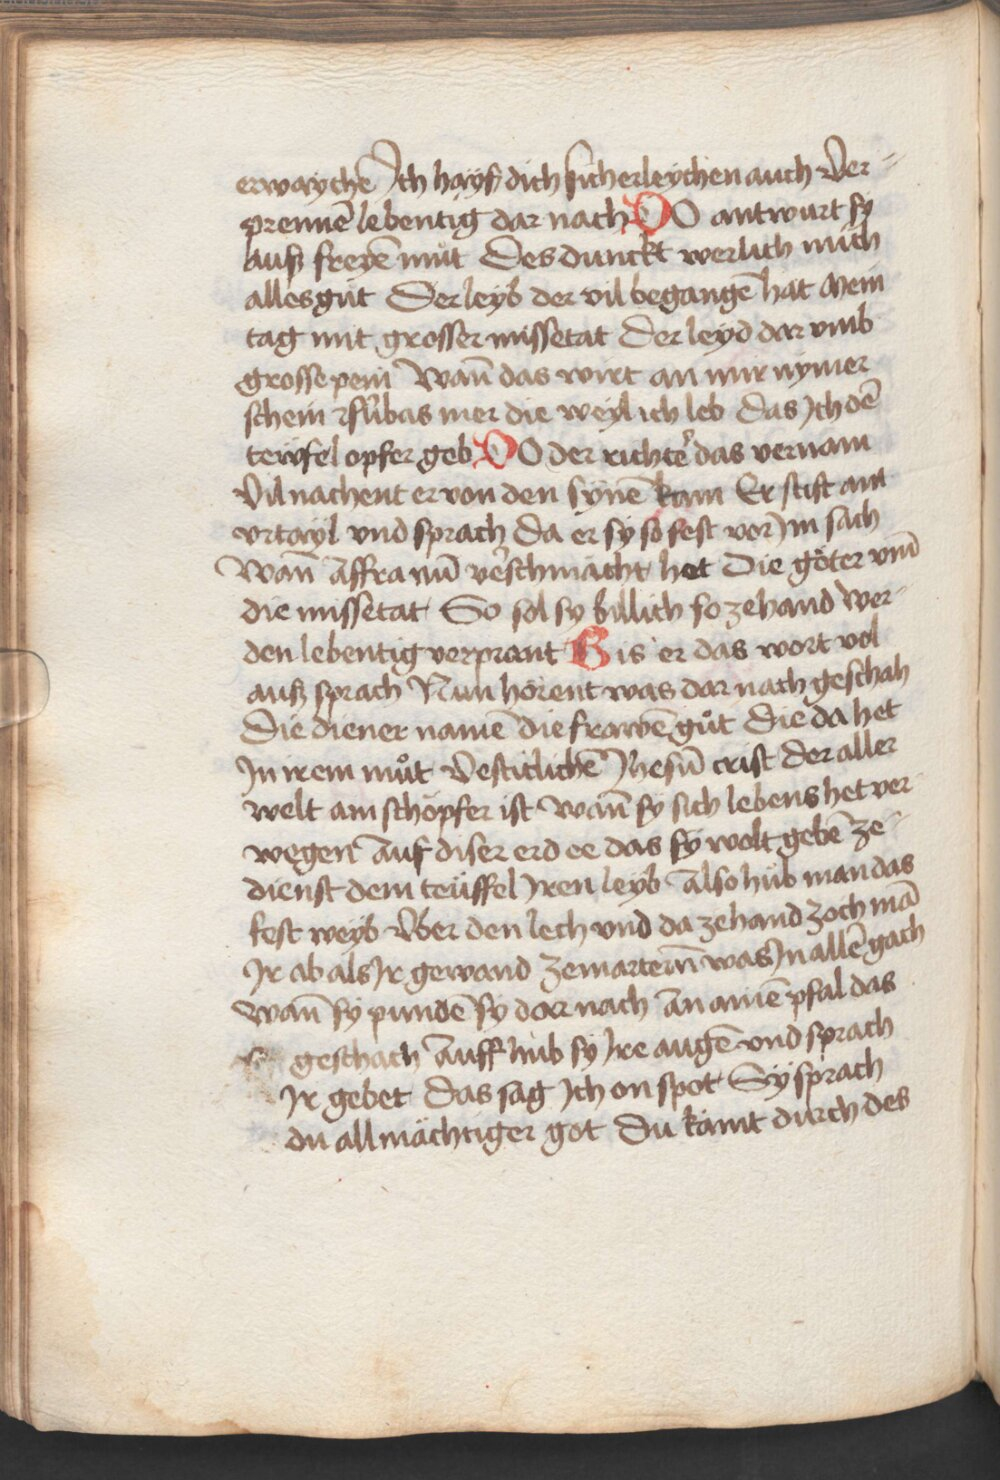 erwaychē Ich hayß dich sicherleychen auch Ver-
prennē lebentig dar nach DO antwurt sy
Auß freyē můt Des dunckt werlich mich
alles gůt Der leyb der vil begangē hat Mein
tag mit grosser missetat Der leyd dar vmb
grosse pein Wann̄ das wirt an mir nymer
schein fůrbas mer die weyl ich leb Das Ich dē
teẅfel opfer geb DO der richtē das vernam
Vil nachent er von den synē kam Er stift ain
vrtayl vnd sprach Da er sy so fest vor Im sach
Wann̄ Affra nū verschmächt het Die göter vnd̄
die missetat So sol sy billich so zehand Wer-
den lebentig verprant Bis er das wort vol
auß sprach Nun hörent was dar nach geschah
Die diener namē die frawē gůt Die da het
In irem můt Vesticlichē Jhesū crist Der aller
welt ain schöpfer ist Wann̄ sy sich lebens het ver-
wegen Auf diser erd ee das sy wolt gebē Ze-
dienst dem teüffel Iren leyb Also hůb man das
fest weyb Vber den lech vnd da zehand Zoch mā
Ir ab als Ir gewand Zemartern̄ was In allē gach
Wann̄ sy pundē sy dar nach An ainē pfal das
geschach Auff hůb sy Ire augē vnd sprach
Ir gebet Das sag Ich on spot Sy sprach
du allmächtiger got Du kämt durch des